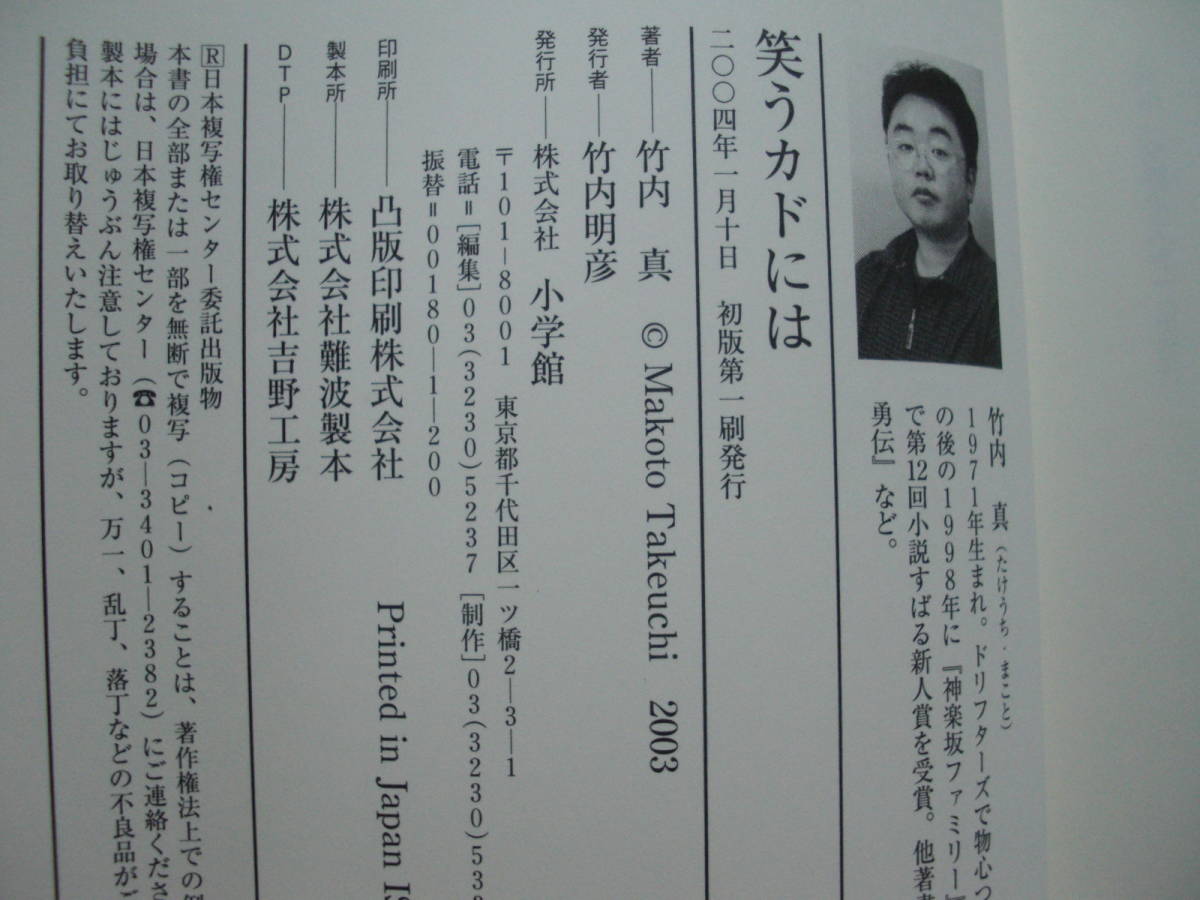 竹内　真（たけうち・まこと）
1971年生まれ。ドリフターズで物心つ
の後の1998年に『神楽坂ファミリー』
で第12回小説すばる新人賞を受賞。他著書
勇伝』など。
笑うカドには
二〇〇四年一月十日　初版第一刷発行
著者――竹内　真　© Makoto Takeuchi　2003
発行者――竹内明彦
発行所――株式会社　小学館
〒101-8001　東京都千代田区一ツ橋2―3―1
電話＝［編集］03(3230)5237［制作］03(3230)533
振替＝00180―1―200
印刷所――凸版印刷株式会社　Printed in Japan IS
製本所――株式会社難波製本
DTP――株式会社吉野工房
Ⓡ日本複写権センター委託出版物
本書の全部または一部を無断で複写（コピー）することは、著作権法上での例
場合は、日本複写権センター（☎03―3401―2382）にご連絡くださ
製本にはじゅうぶん注意しておりますが、万一、乱丁、落丁などの不良品がご
負担にてお取り替えいたします。